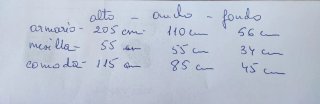 alto - ancho - fondo
armario - 205 cm 110 cm 56 cm
mesilla - 55 cm 55 cm 34 cm
comoda - 115 cm 85 cm 45 cm